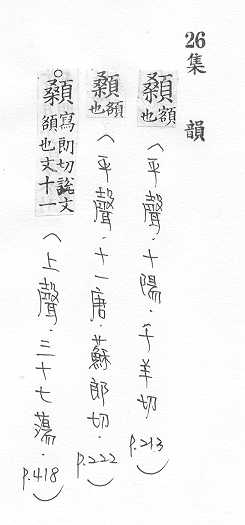 26集韻
顙額也（平聲．十陽．千羊切 p.213）
顙額也（平聲．十一唐．蘇郎切．p.222）
○顙寫朗切說文額也文十一（上聲．三十七蕩．p.418）